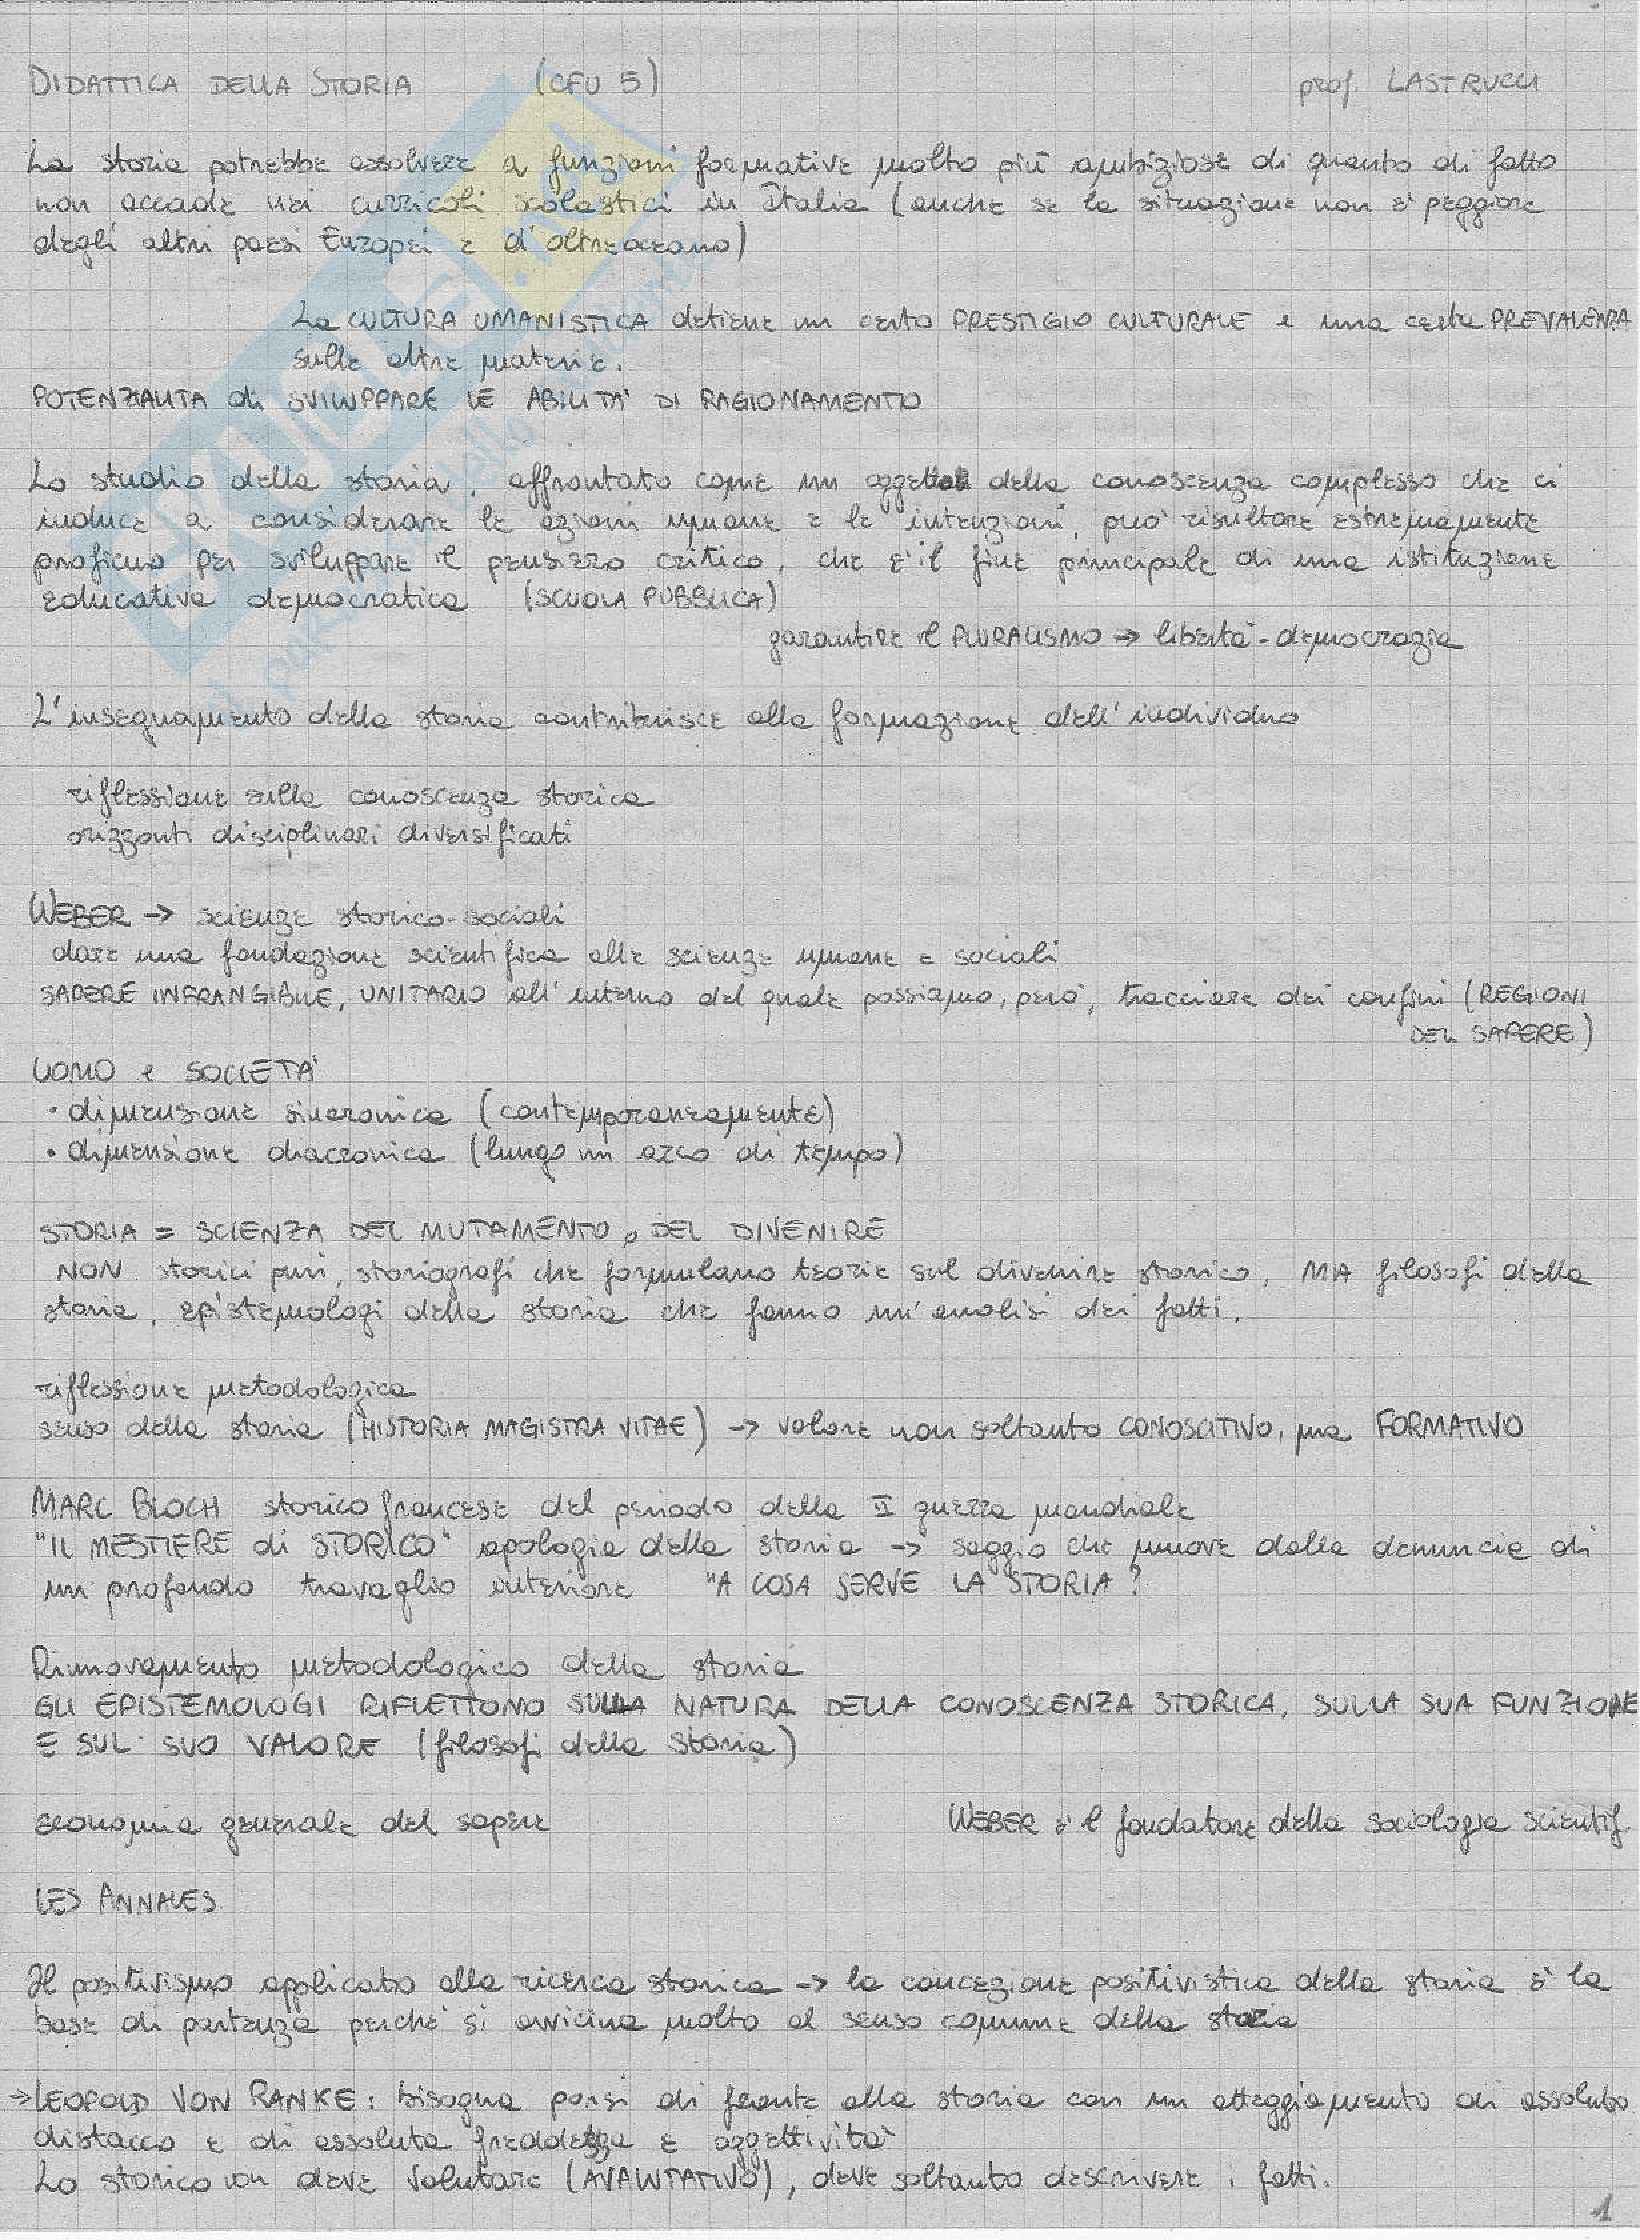 DIDATTICA DELLA STORIA (CFU 5) prof. LASTRUCCI
La storia potrebbe assolvere a funzioni formative molto più ambiziose di quanto di fatto
non accade nei curricoli scolastici in Italia (anche se la situazione non è peggiore
degli altri paesi Europei e d'oltreoceano)
La CULTURA UMANISTICA detiene un certo PRESTIGIO CULTURALE e una certa PREVALENZA
sulle altre materie.
POTENZIALITÀ di SVILUPPARE LE ABILITA' DI RAGIONAMENTO
Lo studio della storia, affrontato come un oggetto della conoscenza complesso che ci
induce a considerare le azioni umane e le intenzioni, può risultare estremamente
proficuo per sviluppare il pensiero critico, che è il fine principale di una istituzione
educativa democratica (SCUOLA PUBBLICA)
garantire il PLURALISMO → libertà - democrazia
L'insegnamento della storia contribuisce alla formazione dell'individuo
riflessione sulla conoscenza storica
orizzonti disciplinari diversificati
WEBER → scienze storico-sociali
dare una fondazione scientifica alle scienze umane e sociali
SAPERE INFRANGIBILE, UNITARIO all'interno del quale possiamo, però, tracciare dei confini (REGIONI
DEL SAPERE)
UOMO e SOCIETA'
• dimensione sincronica (contemporaneamente)
• dimensione diacronica (lungo un arco di tempo)
STORIA = SCIENZA DEL MUTAMENTO, DEL DIVENIRE
NON storici puri, storiografi che formulano teorie sul divenire storico, MA filosofi della
storia, epistemologi della storia che fanno un'analisi dei fatti.
riflessione metodologica
senso della storia (HISTORIA MAGISTRA VITAE) → valore non soltanto CONOSCITIVO, ma FORMATIVO
MARC BLOCH storico francese del periodo della II guerra mondiale
"IL MESTIERE di STORICO" apologia della storia → saggio che muove dalla denuncia di
un profondo travaglio interiore "A COSA SERVE LA STORIA?
Rinnovamento metodologico della storia
GLI EPISTEMOLOGI RIFLETTONO SULLA NATURA DELLA CONOSCENZA STORICA, SULLA SUA FUNZIONE
E SUL SUO VALORE (filosofi della storia)
economia generale del sapere WEBER è il fondatore della sociologia scientif.
LES ANNALES
Il positivismo applicato alla ricerca storica → la concezione positivistica della storia è la
base di partenza perché si avvicina molto al senso comune della storia
→ LEOPOLD VON RANKE: bisogna porsi di fronte alla storia con un atteggiamento di assoluto
distacco e di assoluta freddezza e oggettività
Lo storico non deve valutare (AVALUTATIVO), deve soltanto descrivere i fatti.
1